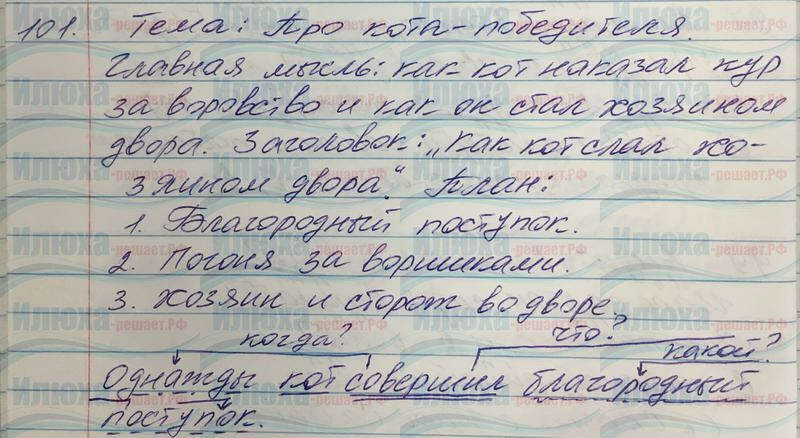 101. Тема: Про кота-победителя.
Главная мысль: как кот наказал кур
за воровство и как он стал хозяином
двора. Заголовок: „Как кот слал хо-
зяином двора." План:
1. Благородный поступок.
2. Погоня за воришками.
3. Хозяин и сторож во дворе.
когда? что? какой?
Однажды кот совершил благородный
поступок.